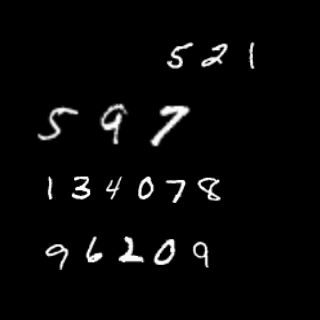 521
597
134078
96209